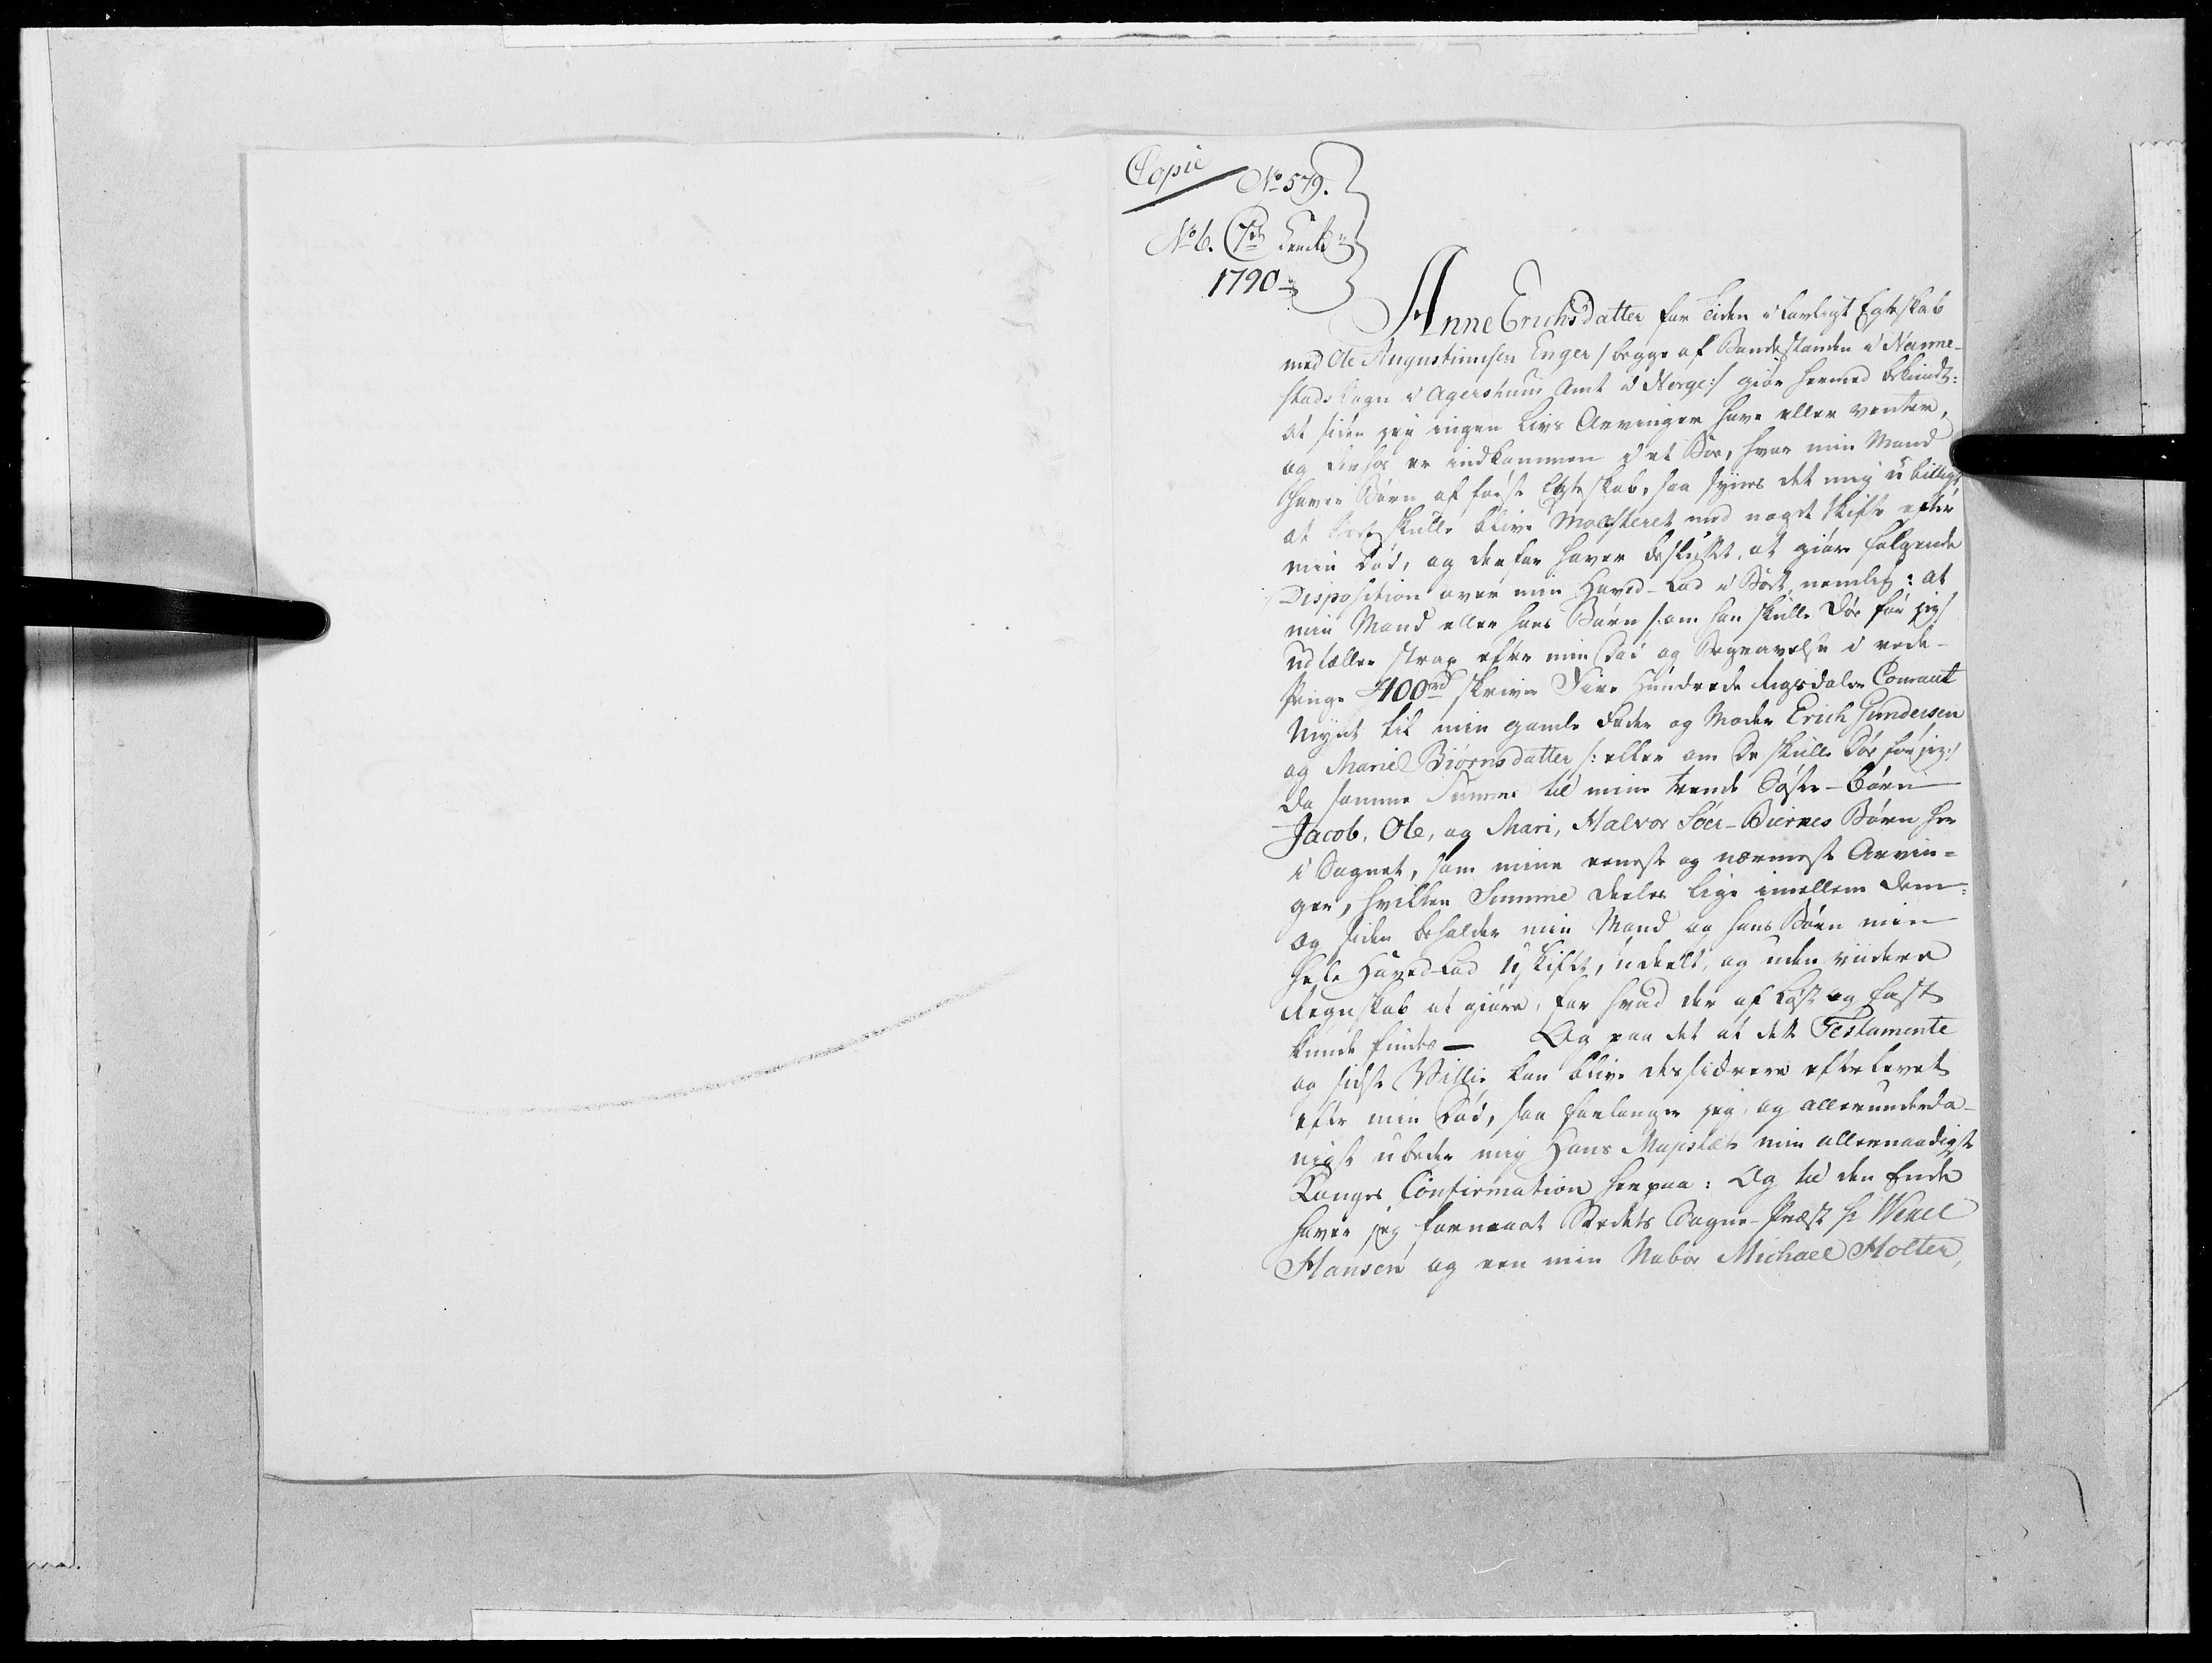 Copie
No 579.
No 6.
1790
Anne Erichsdatter for Tiden i lovligt Egteskab
med Ole Augustinusen Enger /: begge af Bondestanden i Nanne-
stads Sogn i Agershuus Amt i Norge :/ giør hermed bekiendt:
at siden jeg ingen Livs Arvinger have eller venter,
og derhos er indkommen i et Boe, hvor min Mand
haver Børn af første Egteskab, saa synes det mig u billigt
at Boet skulle blive molesteret med noget Skifte efter
min Død, og derfor haver besluttet, at giøre følgende
Disposition over min Hoved-Lod i Boet, nemlig: at
min Mand eller hans Børn /: om han skulle døe før jeg /
udtæller strax efter min Død og Begravelse i rede-
Penge 400rd skriver Fire Hundrede Rigsdaler Courant
Mynt til min gamle Fader og Moder Erich Gundersen
og Marie Biørnsdatter /: eller om De skulle døe før jeg :/
da samme Summe til mine trende Søster-Børn
Jacob, Ole, og Mari, Halvor Søer-Biernes Børn her
i Sognet, som mine eeneste og nærmeste Arvin-
ger, hvilken Summe deeles lige imellem dem:
og siden beholder min Mand og hans Børn min
hele Hoved-Lod uskifte, udeelt, og uden viidere
Regnskab at giøre, for hvad der af Løst og Fast
kunde findes — Og paa det at dette Testamente
og sidste Villie kan blive des sikrere efterlevet
efter min Død, saa forlanger jeg, og allerunderda-
nigst udbeder mig Hans Majestæts min allernaadigste
Konges Confirmation herpaa: Og til den Ende
haver jeg formaaet Stedets Sogne-Præst Hr Wexel
Hansen og een min Nabor Michael Holter,